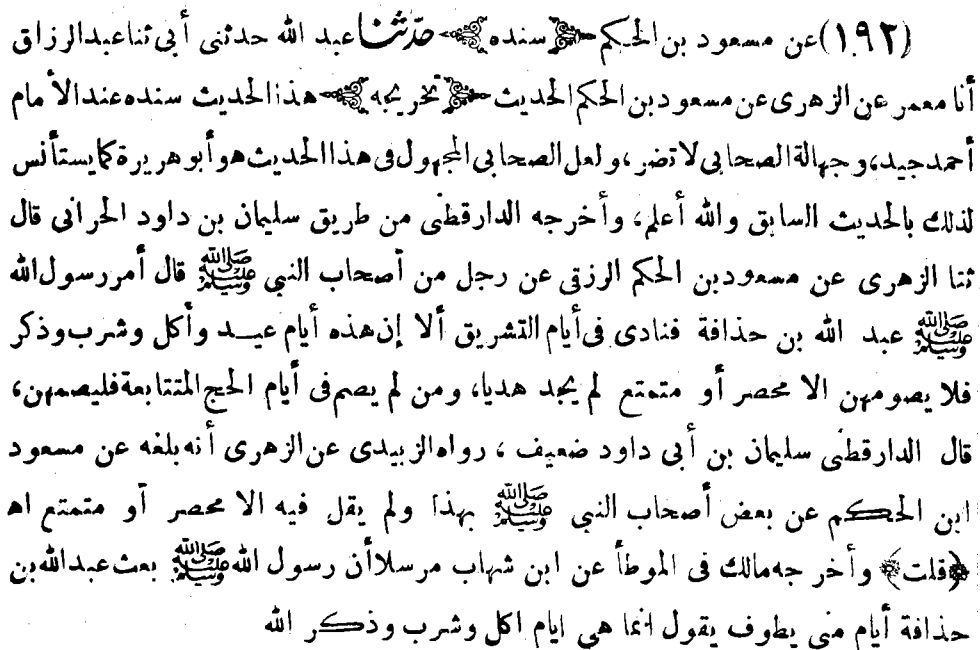 (١٩٢) عن مسعود بن الحكم ﴿سنده﴾ حدثنا عبد الله حدثنى أبى ثنا عبد الرزاق
أنا معمر عن الزهرى عن مسعود بن الحكم الحديث ﴿تخريجه﴾ هذا الحديث سنده عند الأمام
أحمد جيد، وجهالة الصحابى لا تضر، ولعل الصحابى المجهول فى هذا الحديث هو أبو هريرة كما يستأنس
لذلك بالحديث السابق والله أعلم، وأخرجه الدارقطنى من طريق سليمان بن داود الحرانى قال
ثنا الزهرى عن مسعود بن الحكم الرزقى عن رجل من أصحاب النبى ﷺ قال أمر رسول الله
ﷺ عبد الله بن حذافة فنادى فى أيام التشريق ألا إن هذه أيام عيد وأكل وشرب وذكر
فلا يصومهن الا محصر أو متمتع لم يجد هديا، ومن لم يصم فى أيام الحج المتتابعة فليصمهن،
قال الدارقطنى سليمان بن أبى داود ضعيف، رواه الزبيدى عن الزهرى أنه بلغه عن مسعود
ابن الحكم عن بعض أصحاب النبى ﷺ بهذا ولم يقل فيه الا محصر أو متمتع اه
﴿قلت﴾ وأخرجه مالك فى الموطأ عن ابن شهاب مرسلا أن رسول الله ﷺ بعث عبد الله بن
حذافة أيام منى يطوف يقول انما هى ايام اكل وشرب وذكر الله